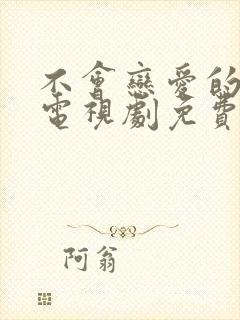 不會戀愛的
電視劇免費
阿翁